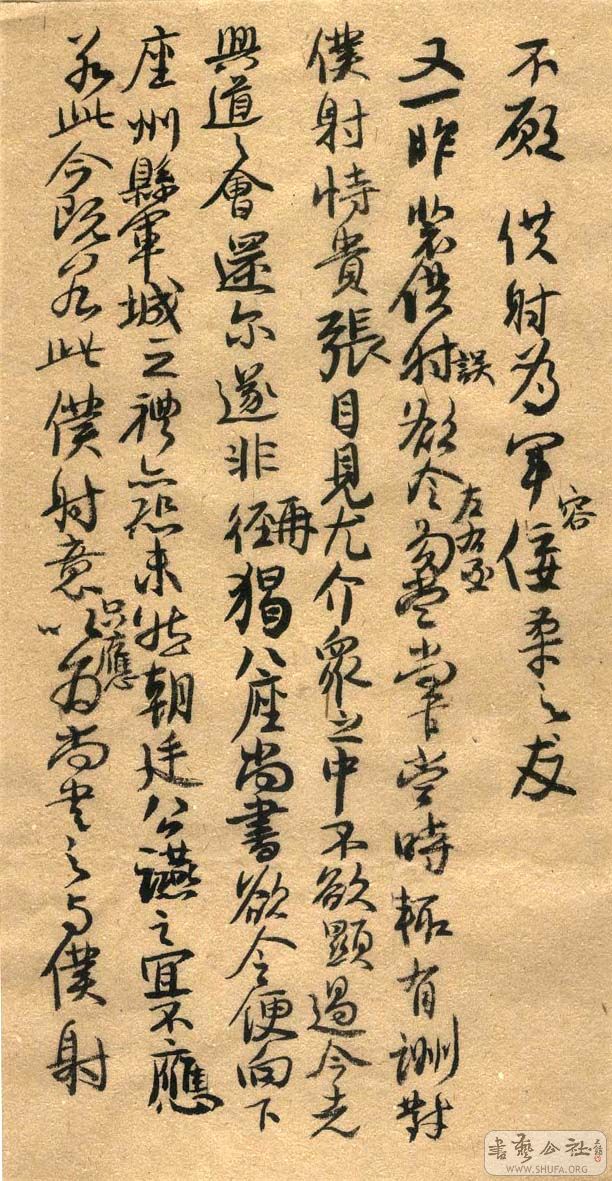 不願 僕射為軍容佞柔之友
又一昨裴僕射誤欲令左右丞勾當尚書當時輒有酬對
僕射恃貴張目見尤介眾之中不欲顯過今者
興道之會還尔遂非再徑猲八座尚書欲令便向下
座州縣軍城之禮亦恐未然朝廷公讌之宜不應
若此今既若此僕射意只應以為尚書之與僕射
書藝公社
WWW.SHUFA.ORG